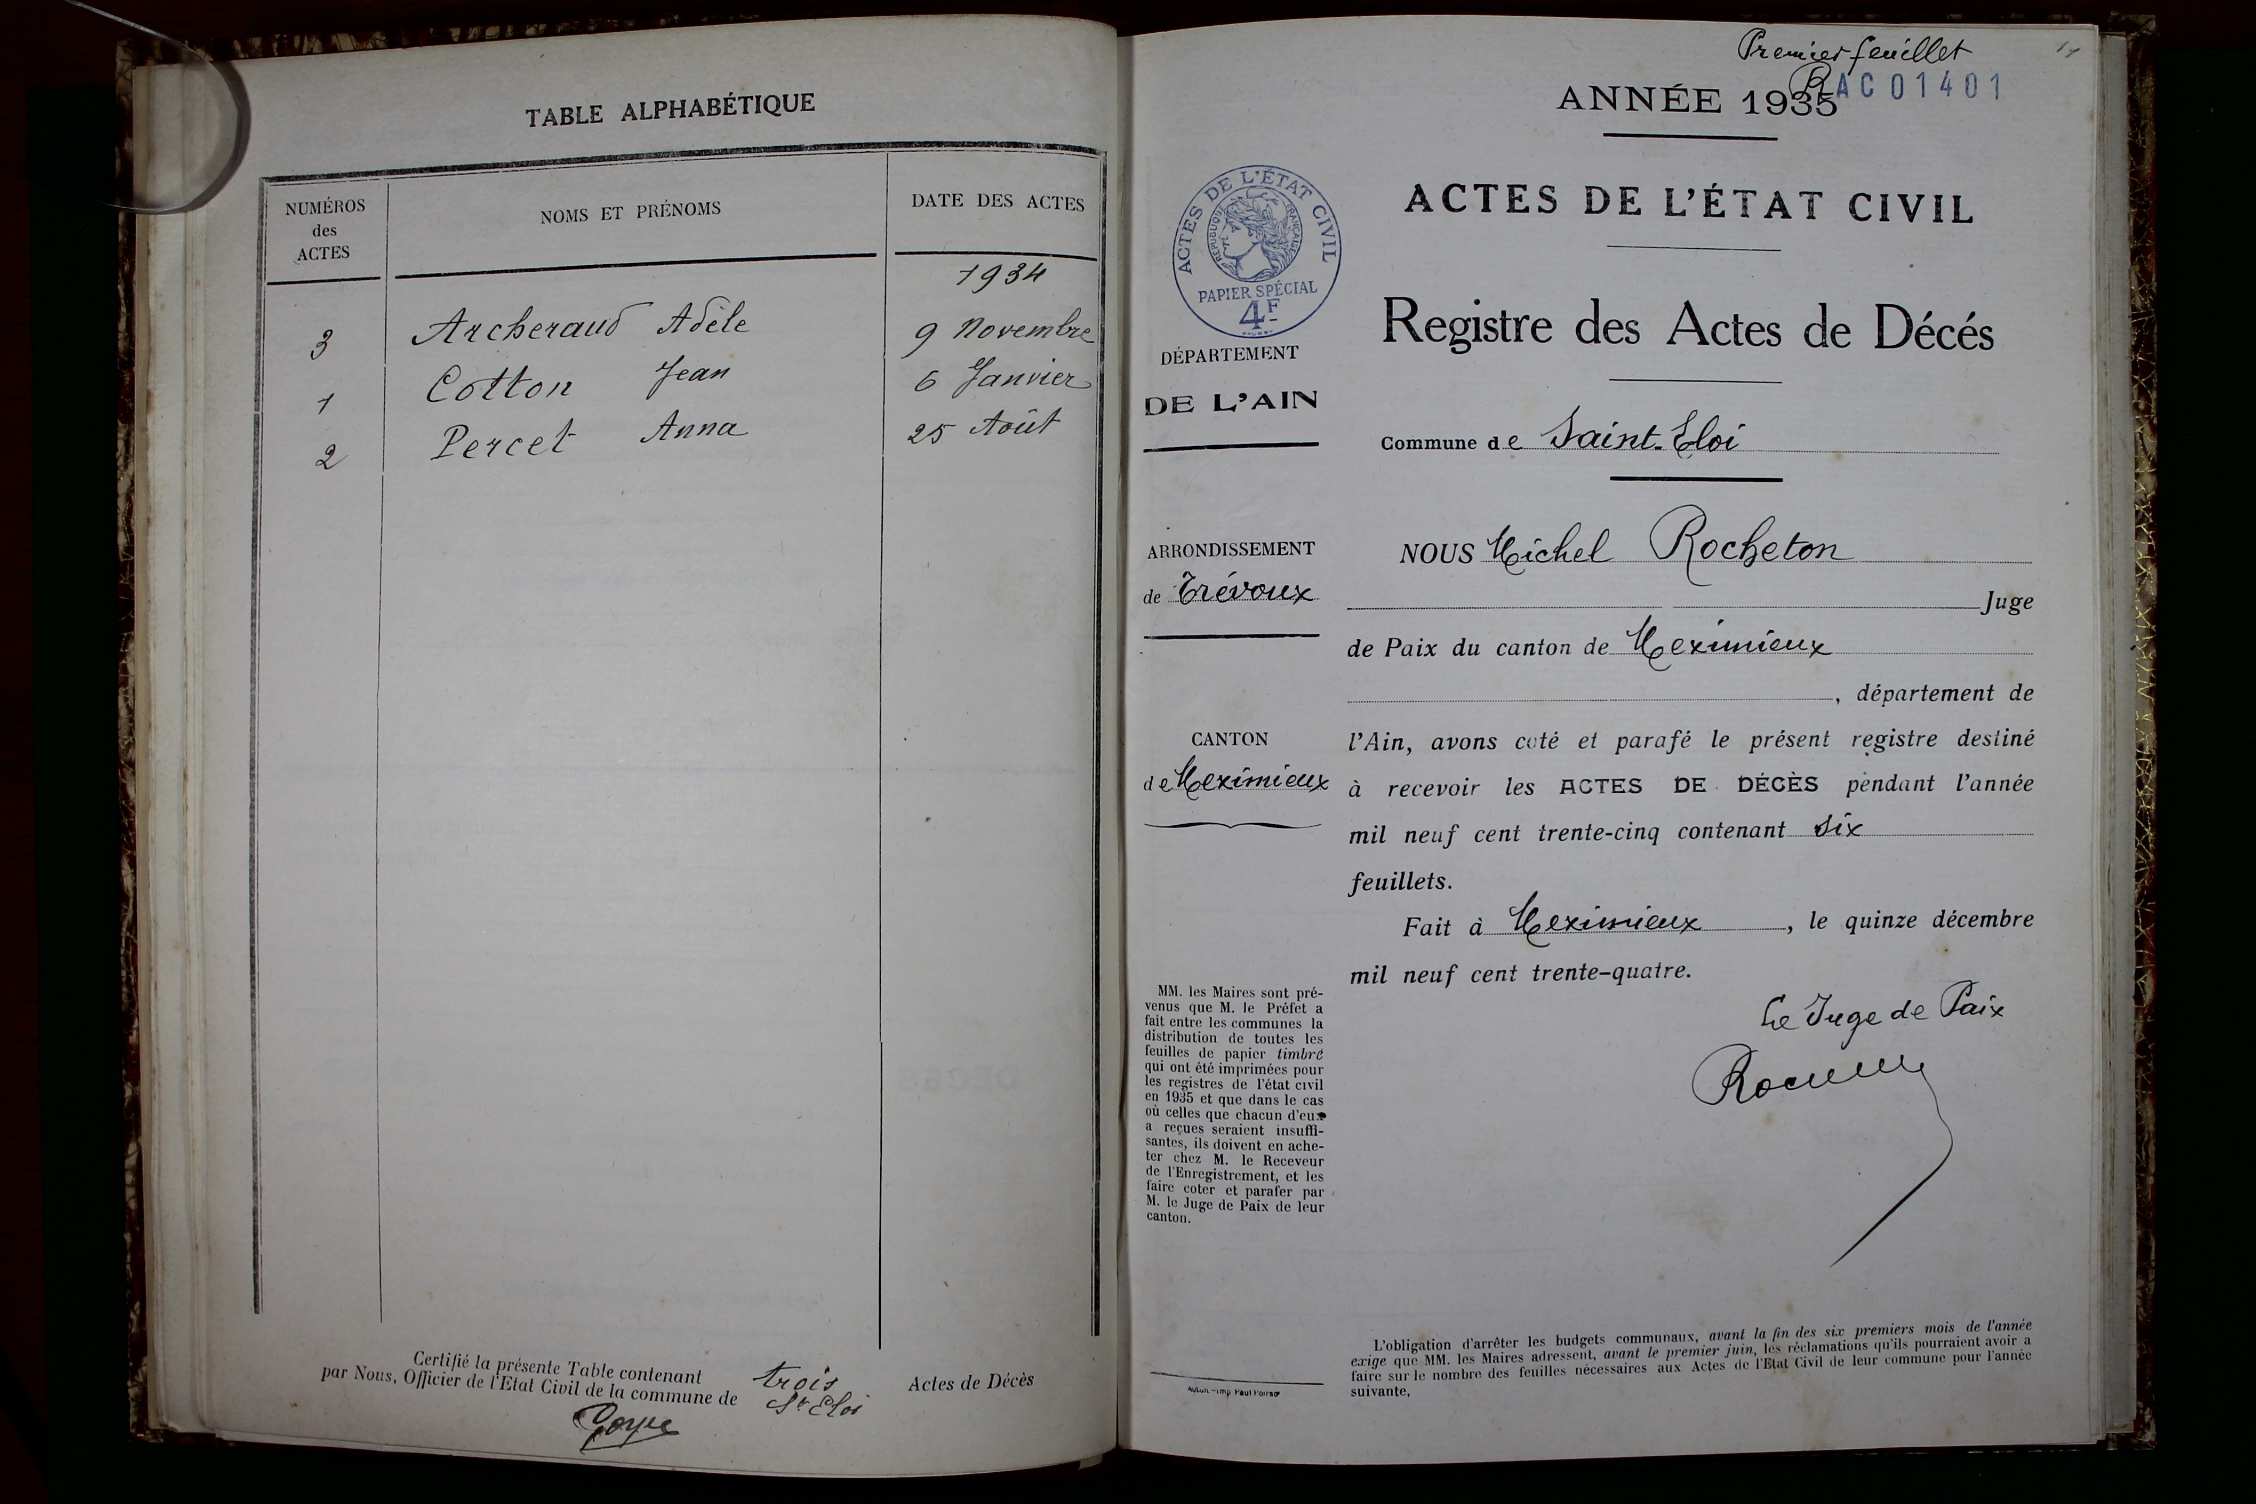 TABLE ALPHABÉTIQUE
NUMÉROS
des
ACTES
NOMS ET PRÉNOMS
DATE DES ACTES
1934
3 Archeraud Adèle 9 Novembre
1 Cotton Jean 6 Janvier
2 Percet Anna 25 Août
Certifié la présente Table contenant trois Actes de Décès
par Nous, Officier de l'Etat Civil de la commune de St Eloi
Premier feuillet
R AC 01401
ANNÉE 1935
ACTES DE L'ÉTAT CIVIL
RÉPUBLIQUE FRANÇAISE
PAPIER SPÉCIAL
4F
DÉPARTEMENT
DE L'AIN
ARRONDISSEMENT
de Trévoux
CANTON
de Meximieux
MM. les Maires sont pré-
venus que M. le Préfet a
fait entre les communes la
distribution de toutes les
feuilles de papier timbré
qui ont été imprimées pour
les registres de l'état civil
en 1935 et que dans le cas
où celles que chacun d'eux
a reçues seraient insuffi-
santes, ils doivent en ache-
ter chez M. le Receveur
de l'Enregistrement, et les
faire coter et parafer par
M. le Juge de Paix de leur
canton.
ACTES DE L'ÉTAT CIVIL
Registre des Actes de Décés
Commune de Saint-Eloi
NOUS Michel Rocheton
Juge
de Paix du canton de Meximieux
, département de
l'Ain, avons coté et parafé le présent registre destiné
à recevoir les ACTES DE DÉCÈS pendant l'année
mil neuf cent trente-cinq contenant six
feuillets.
Fait à Meximieux, le quinze décembre
mil neuf cent trente-quatre.
Le Juge de Paix
L'obligation d'arrêter les budgets communaux, avant la fin des six premiers mois de l'année
exige que MM. les Maires adressent, avant le premier juin, les réclamations qu'ils pourraient avoir a
faire sur le nombre des feuilles nécessaires aux Actes de l'Etat Civil de leur commune pour l'année
suivante.